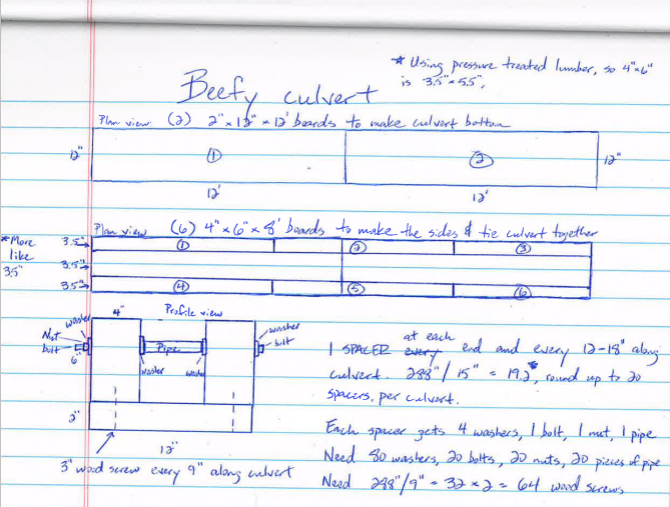 * Using pressure treated lumber, so 4"x6"
is 3.5"x5.5".
Beefy culvert
Plan view (2) 2"x12"x12' boards to make culvert bottom
12" ① ② 12"
12' 12'
Plan view (6) 4"x6"x8' boards to make the sides & tie culvert together
*More
like
3.5"
3.5" ① ② ③
3.5"
3.5" ④ ⑤ ⑥
Profile view
4"
washer
Nut
bolt
6"
Pipe
washer
washer
washer
bolt
2"
12"
3" wood screw every 9" along culvert
1 SPACER every at each end and every 12-18" along
culvert. 288"/15" = 19.2", round up to 20
spacers, per culvert.
Each spacer gets 4 washers, 1 bolt, 1 nut, 1 pipe
Need 80 washers, 20 bolts, 20 nuts, 20 pieces of pipe
Need 288"/9" = 32 x 2 = 64 wood screws